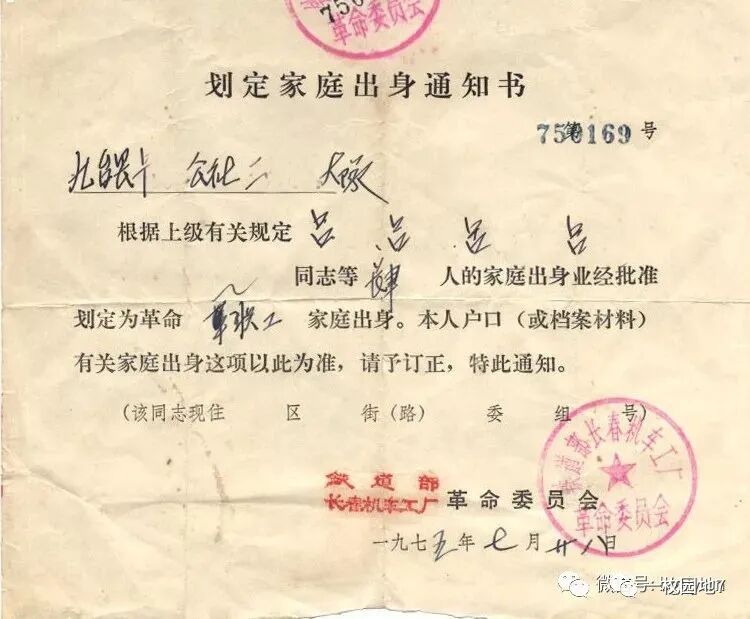 750
革命委员会
划定家庭出身通知书
第750169号
公社二 大队
根据上级有关规定 吕 吕 吕 吕
同志等 肆 人的家庭出身业经批准
划定为革命 革职工 家庭出身。本人户口（或档案材料）
有关家庭出身这项以此为准，请予订正，特此通知。
（该同志现住 区 街（路） 委 组 号）
铁道部
长春机车工厂 革命委员会
铁道部长春机车工厂
革命委员会
一九七五年七月廿八日
微信公众号 校园地